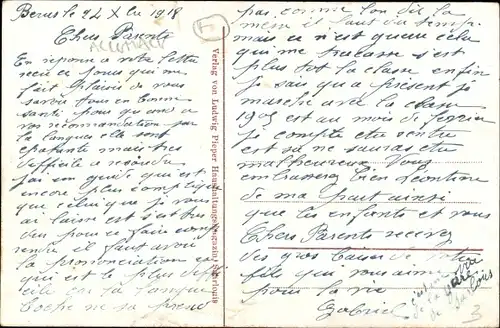 Berus le 24 Xbre 1918
Chers Parents
En réponse a votre lettre
recu ce jour qui me
fait plaisir de vous
savoir tous en bonne
santé pour quand a
vos recommandation par
la langue elle sont
épatante mais tres
difficile a resoudre
j'ai son guide qui est
encore plus compliqué
que celui que je vous
ai laisse est s'est tres
dur pour ce faire com
prendre il faut avoir
la prononciation ce
qui est le plus diffi
cile car la langue
Boche ne sa prend
pas comme l'on dit la
meme il faut du temps
mais ce n'est guere cela
qui me tracasse s'est
plus tot la classe enfin
je sais qu a présent je
marche avec la classe
1905 est au mois de fevrier
je compte etre rentre
est sa ne sauras etre
malheureux Vous
embrasserez bien Léontine
de ma part ainsi
que les enfants et vous
Chers Parents recevez
des gros baiser de votre
fils qui vous aime
pour la vie
Gabriel
Verlag von Ludwig Pieper Haushaltungsmagazin, Saarlouis
ALLEMAGNE
F
3